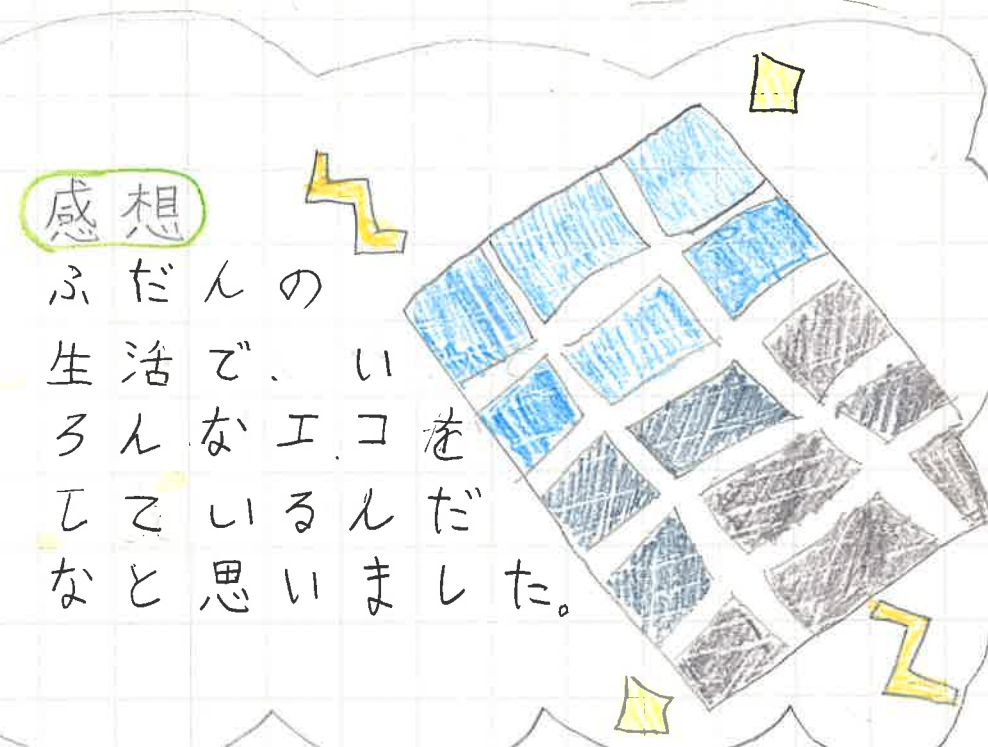 感想
ふだんの
生活で、い
ろんなエコを
しているんだ
なと思いました。